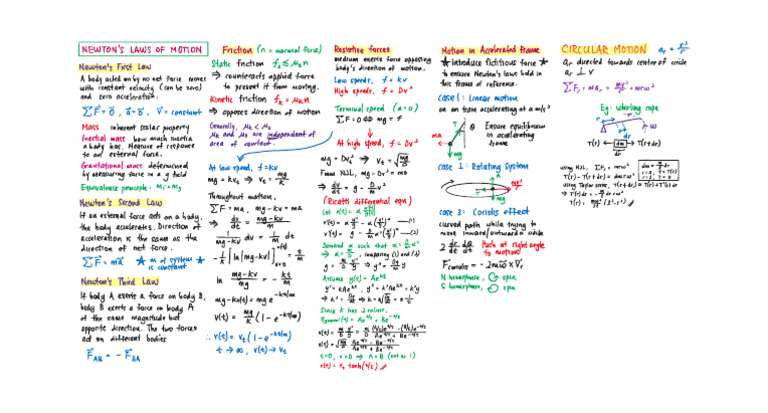 NEWTON'S LAWS OF MOTION
Newton's First Law
A body acted on by no net force moves
with constant velocity (can be zero)
and zero acceleration.
∑F⃗ = 0⃗, a⃗ = 0⃗, v⃗ = constant
Mass inherent scalar property
Inertial mass how much inertia
a body has. Measure of response
to an external force.
Gravitational mass determined
by measuring force in a g field
Equivalence principle: Mi = Mg
Newton's Second Law
If an external force acts on a body,
the body accelerates. Direction of
acceleration is the same as the
direction of net force.
∑F⃗ = ma⃗ ★ m of system ★
is constant
Newton's Third Law
If body A exerts a force on body B,
body B exerts a force on body A
of the same magnitude but
opposite direction. The two forces
act on different bodies
F⃗AB = -F⃗BA
Friction (n = normal force)
Static friction fs ≤ μsn
⇒ counteracts applied force
to prevent it from moving.
Kinetic friction fk = μkn
⇒ opposes direction of motion
Generally, μk < μs
μk and μs are independent of
area of contact.
At low speed, f = kv
mg = kvt ⇒ vt = mg/k
Throughout motion,
∑F = ma, mg - kv = ma
⇒ dv/dt = (mg - kv)/m
1/(mg - kv) dv = 1/m dt
ln (mg - kv)/mg = -kt/m
mg - kv(t) = mg e^(-kt/m)
v(t) = mg/k (1 - e^(-kt/m))
∴ v(t) = vt (1 - e^(-kt/m))
t → ∞, v(t) → vt
Resistive forces
medium exerts force opposing
body's direction of motion.
Low speeds, f = kv
High speeds, f = Dv²
Terminal speed (a = 0)
∑F = 0 ⇔ mg = f
At high speed, f = Dv²
mg = Dvt² ⇒ vt = √(mg/D)
From N2L, mg - Dv² = ma
⇒ dv/dt = g - D/m v²
(Ricatti differential eqn)
Since k has 2 values,
t=0, v=0 ⇒ A = B (set as 1)
v(t) = vt tanh(t/τ)
Motion in Accelerated Frame
★ introduce fictitious force ★
to ensure Newton's laws hold in
this frame of reference.
case 1: Linear motion
on an train accelerating at a m/s²
Ensure equilibrium
in accelerating
frame
T
θ
ma
mg
case 2: Rotating System
case 3: Coriolis effect
curved path while trying to
move inward/outward a circle
Push at right angle
to motion
Fcoriolis = -2mω⃗ × vr
N hemisphere, spin
S hemisphere, spin
CIRCULAR MOTION ar = v²/r
ar directed towards center of circle
ar ⊥ v
∑Fr = mar = mv²/r = mrω²
Eg: whirling rope
T(r) ← dm → T(r+dr)
using N2L, ∑Fr = mrω²
T(r) - T(r+dr) = dm rω²